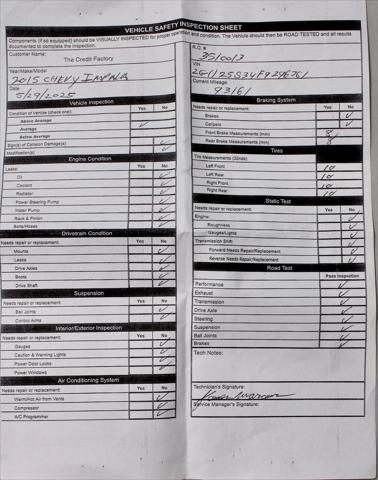 VEHICLE SAFETY INSPECTION SHEET
Components (if so equipped) should be VISUALLY INSPECTED for proper operation and condition. The Vehicle should then be ROAD TESTED and all results
documented to complete the inspection.
Customers Name:
The Credit Factory
Year/Make/Model
2015 CHEVY IMPALA
Date
5/29/2025
Vehicle Inspection
Condition of Vehicle (check one): Yes No
Above Average
Average ✓
Below Average
Sign(s) of Collision Damage(s) ✓
Modification(s) ✓
Engine Condition
Leaks: Yes No
Oil ✓
Coolant ✓
Radiator ✓
Power Steering Pump ✓
Water Pump ✓
Rack & Pinion ✓
Belts/Hoses ✓
Drivetrain Condition
Needs repair or replacement: Yes No
Mounts ✓
Leaks ✓
Drive Axles ✓
Boots ✓
Drive Shaft ✓
Suspension
Needs repair or replacement: Yes No
Ball Joints ✓
Control Arms ✓
Interior/Exterior Inspection
Needs repair or replacement: Yes No
Gauges ✓
Caution & Warning Lights ✓
Power Door Locks ✓
Power Windows ✓
Air Conditioning System
Needs repair or replacement: Yes No
Warm/Hot Air from Vents ✓
Compressor ✓
A/C Programmer ✓
R.O. #
35/0013
VIN
2G1125S34F9296761
Current Mileage
93161
Braking System
Needs repair or replacement: Yes No
Brakes ✓
Calipers ✓
Front Brake Measurements (mm) 8
Rear Brake Measurements (mm) 8
Tires
Tire Measurements (32nds)
Left Front 10
Left Rear 10
Right Front 10
Right Rear 10
Static Test
Needs repair or replacement: Yes No
Engine: ✓
Roughness ✓
Gauges/Lights ✓
Transmission Shift: ✓
Forward Needs Repair/Replacement ✓
Reverse Needs Repair/Replacement ✓
Road Test
Pass Inspection
Performance ✓
Exhaust ✓
Transmission ✓
Drive Axle ✓
Steering ✓
Suspension ✓
Ball Joints ✓
Brakes ✓
Tech Notes:
Technician's Signature:
Service Manager's Signature: